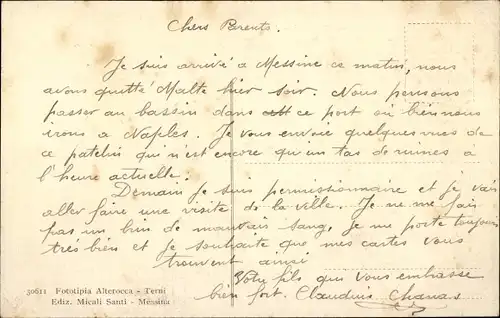 Chers Parents.
Je suis arrivé a Messine ce matin, nous
avons quitté Malte hier soir. Nous pensons
passer au bassin dans ce port ou bien nous
irons a Naples. Je vous envoie quelques vues de
ce patelin qui n'est encore qu'un tas de ruines à
l'heure actuelle.
Demain je suis permissionnaire et je vais
aller faire une visite de la ville. Je ne me fais
pas un brin de mauvais sang, je me porte toujours
très bien et je souhaite que mes cartes vous
trouvent ainsi
Votre fils qui vous embrasse
bien fort. Claudius Chavas
30611 Fototipia Alterocca - Terni
Ediz. Micali Santi - Messina